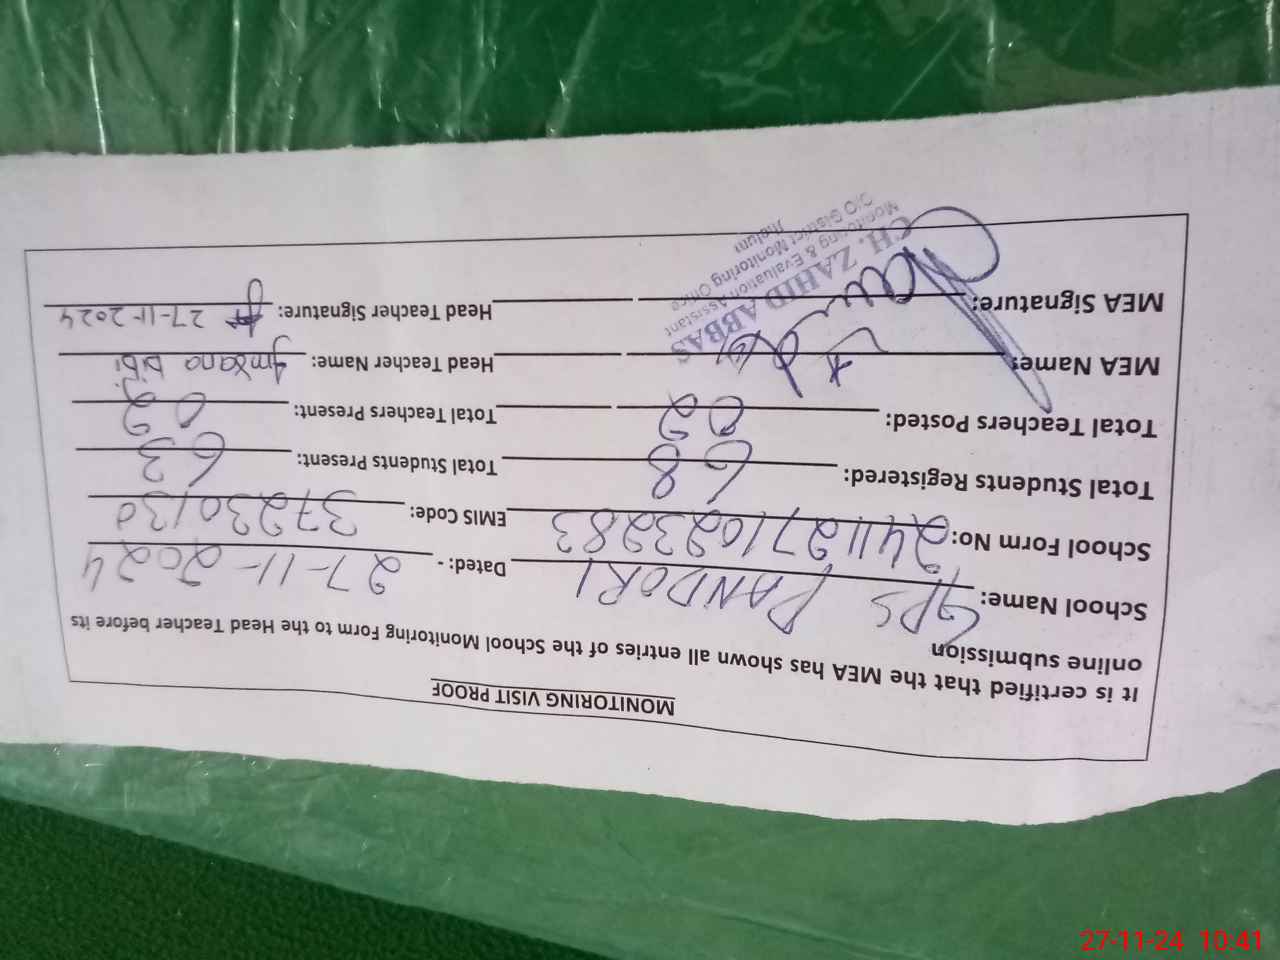 MONITORING VISIT PROOF
It is certified that the MEA has shown all entries of the School Monitoring Form to the Head Teacher before its
online submission
School Name: GPS PANDORI Dated: - 27-11-2024
School Form No: 2411271023283 EMIS Code: 37230130
Total Students Registered: 68 Total Students Present: 63
Total Teachers Posted: 02 Total Teachers Present: 02
MEA Name: Head Teacher Name: Imrana bibi
MEA Signature: Head Teacher Signature: 27-11-2024
CH. ZAHID ABBAS
Monitoring & Evaluation Assistant
O/O District Monitoring Office
Jhelum
27-11-24 10:41